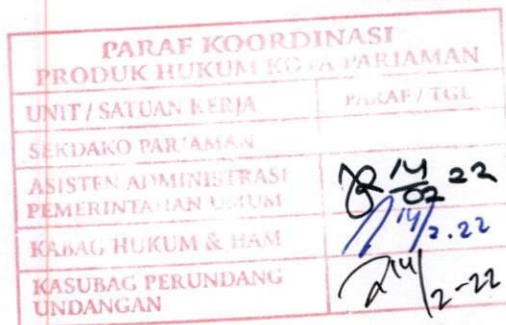 PARAF KOORDINASI
PRODUK HUKUM KOTA PARIAMAN
UNIT / SATUAN KERJA PARAF / TGL
SEKDAKO PARIAMAN
ASISTEN ADMINISTRASI
PEMERINTAHAN UMUM 14/02 22
KABAG HUKUM & HAM 14/2.22
KASUBAG PERUNDANG
UNDANGAN 14/2-22